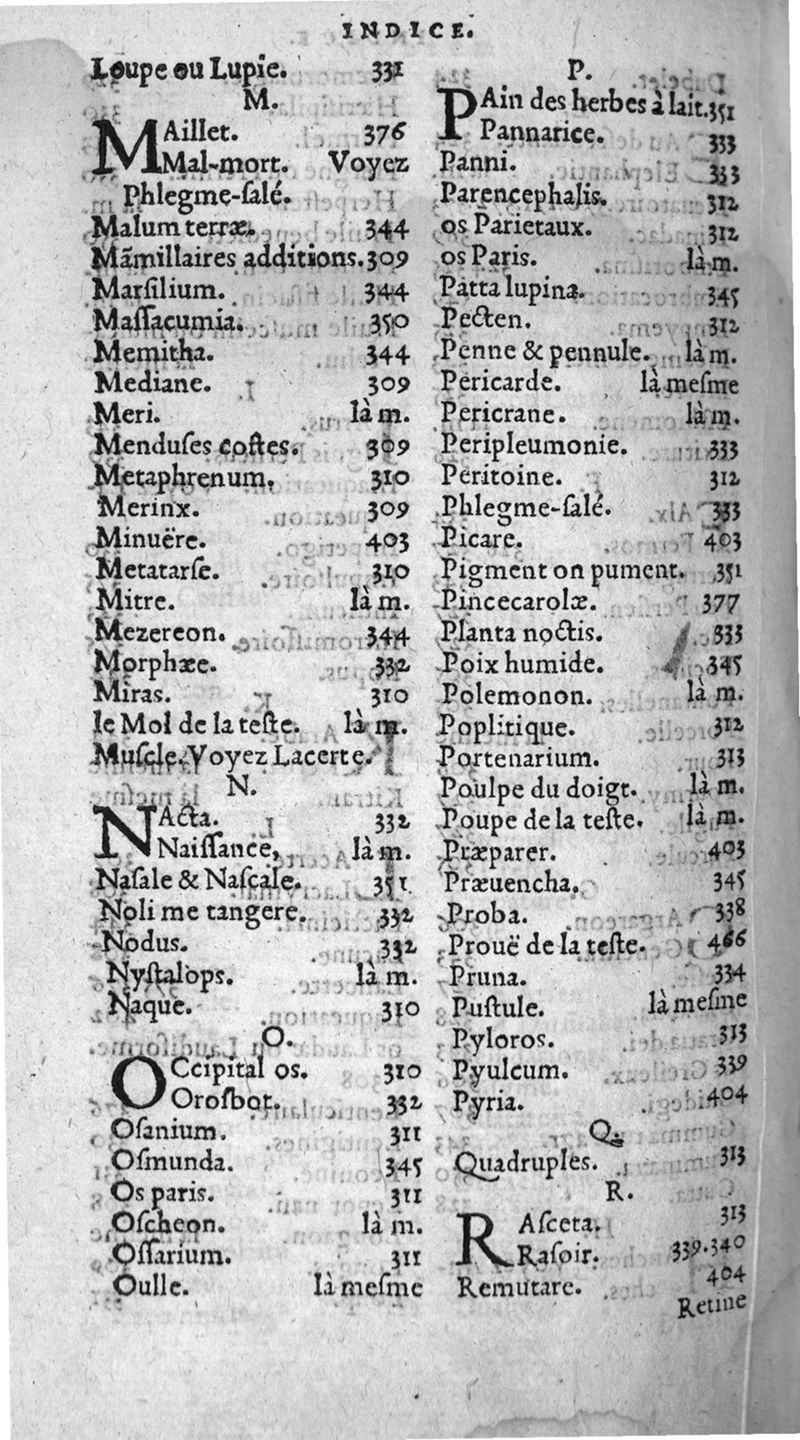 INDICE.
Loupe ou Lupie. 331
M.
MAillet. 376
Mal-mort. Voyez
Phlegme-ſalé.
Malum terræ. 344
Mãmillaires additions. 309
Marſilium. 344
Maſſacumia. 350
Memitha. 344
Mediane. 309
Meri. là m.
Menduſes coſtes. 309
Metaphrenum. 310
Merinx. 309
Minuëre. 403
Metatarſe. 310
Mitre. là m.
Mezereon. 344
Morphæe. 332
Miras. 310
le Mol de la teſte. là m.
Muſcle. Voyez Lacerte.
N.
NActa. 332
Naiſſance, là m.
Naſale & Naſcale. 351
Noli me tangere. 332
Nodus. 332
Nyſtalops. là m.
Naque. 310
O.
OCcipital os. 310
Orosbot. 332
Oſanium. 311
Oſmunda. 345
Os paris. 311
Oſcheon. là m.
Oſſarium. 311
Oulle. là meſme
P.
PAin des herbes à lait. 351
Pannarice. 333
Panni. 333
Parencephalis. 312
os Parietaux. 312
os Paris. là m.
Patta lupina. 345
Pecten. 312
Penne & pennule. là m.
Pericarde. là meſme
Pericrane. là m.
Peripleumonie. 333
Peritoine. 312
Phlegme-ſalé. 333
Picare. 403
Pigment on pument. 351
Pincecarolæ. 377
Planta noctis. 333
Poix humide. 345
Polemonon. là m.
Poplitique. 312
Portenarium. 313
Poulpe du doigt. là m.
Poupe de la teſte. là m.
Præparer. 403
Præuencha. 345
Proba. 338
Prouë de la teſte. 466
Pruna. 334
Puſtule. là meſme
Pyloros. 313
Pyulcum. 339
Pyria. 404
Q.
Quadruples. 313
R.
RAſceta. 313
Raſoir. 339.340
Remutare. 404
Retine